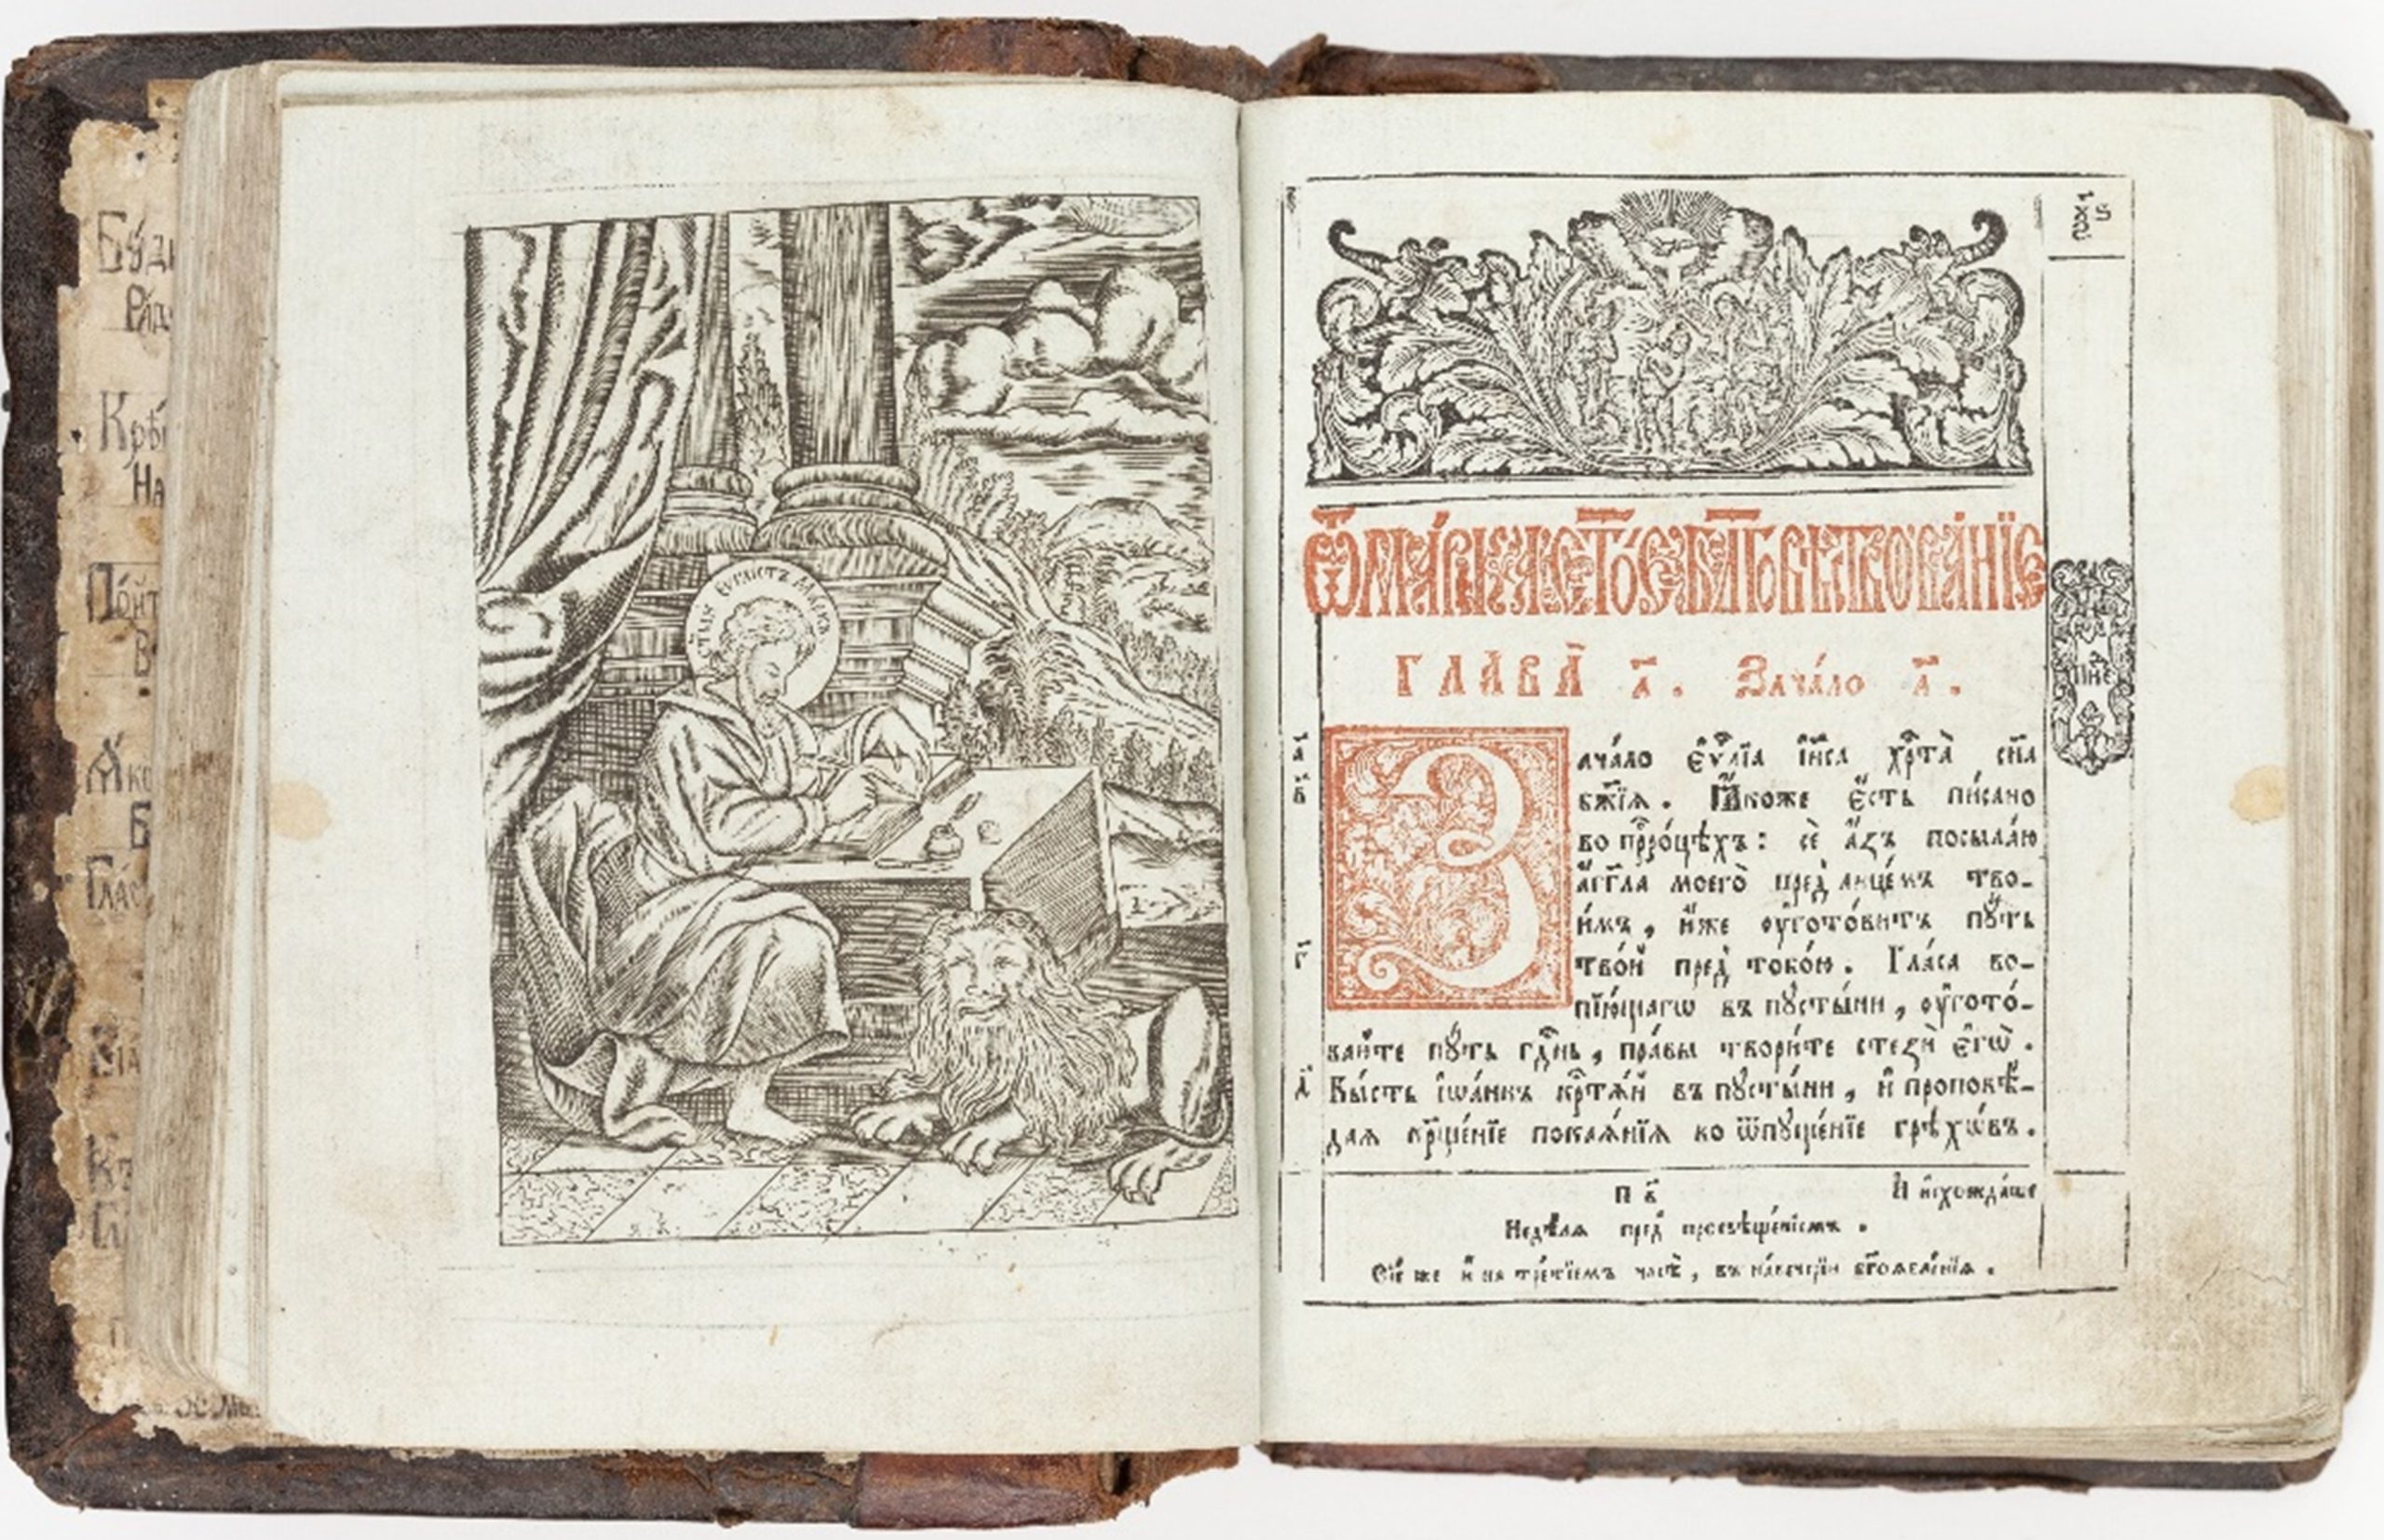 Бꙋди
Крѣ
На
Гла
ст҃ый еѵⷢ҇листъ марко
ѿ ма́рка ст҃о́е бл҃говѣствова́нїе
ГЛАВА̀ а҃. Зача́ло а҃.
Зача́ло є҆ѵⷢ҇лїа і҆и҃са хрⷭ҇та̀ сн҃а
бж҃їѧ. Ꙗ҆́коже є҆́сть пи́сано
во прⷪ҇ро́цѣхъ: сѐ а҆́зъ посыла́ю
а҆́гг҃ла моего̀ пред̾ лице́мъ тво-
и́мъ, и҆́же ᲂу҆гото́витъ пꙋ́ть
тво́й пред̾ тобо́ю. Гла́са во-
пїю́щагѡ въ пꙋсты́ни, ᲂу҆гото́-
вайте пꙋ́ть гдⷭ҇нь, пра́вы твори́те стезѝ є҆гѡ̀.
Бы́сть і҆ѡа́ннъ крⷭ҇тѧ́й въ пꙋсты́ни, и҆ проповѣ́-
даѧ крⷭ҇ще́нїе покаѧ́нїѧ во ѿпꙋще́нїе грѣхѡ́въ.
П в҃ И҆ и҆схожда́ше
Недѣ́лѧ пред̾ просвѣще́нїемъ.
Сїе́ же и҆ на тре́тїемъ часѣ̀, въ наве́черїи бг҃оѧвле́нїѧ.
а҃
в҃
г҃
д҃